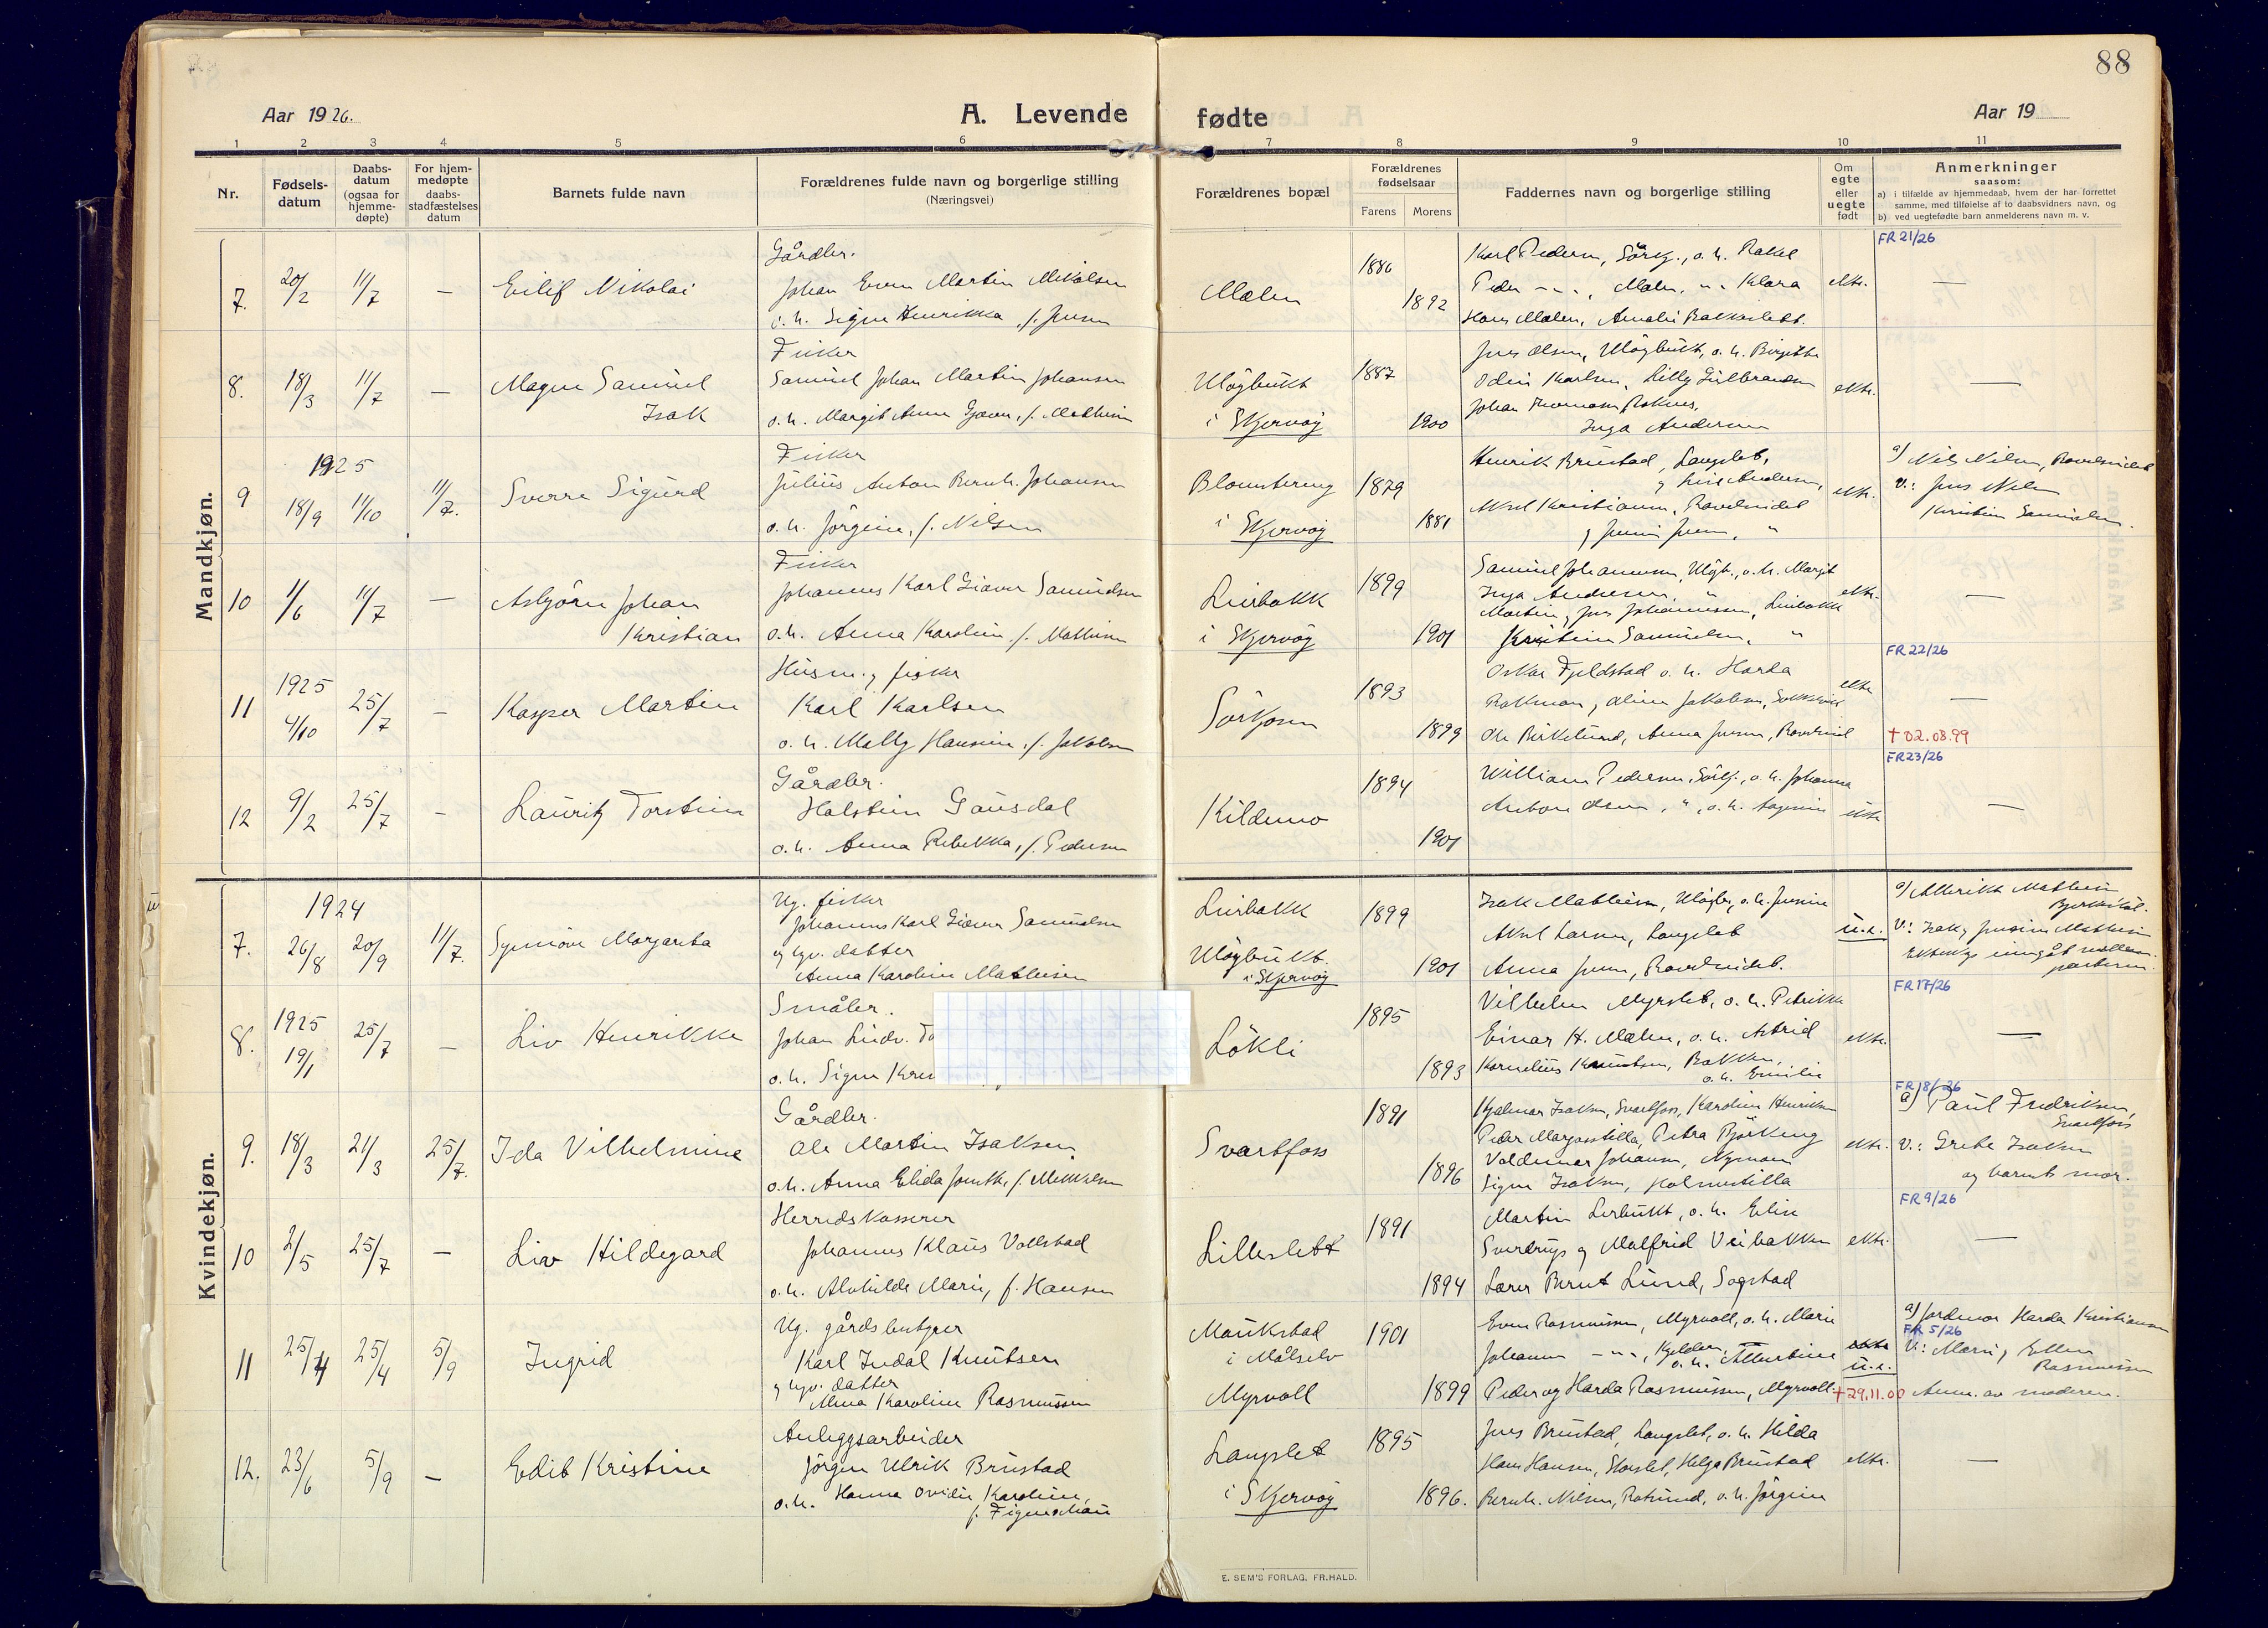 88
Aar 1926.
A. Levende
fødte
Aar 19
1 2 3 4 5 6 7 8 9 10 11
Nr.
Fødsels-
datum
Daabs-
datum
(ogsaa for
hjemme-
døpte)
For hjem-
medøpte
daabs-
stadfæstelses
datum
Barnets fulde navn
Forældrenes fulde navn og borgerlige stilling
(Næringsvei)
Forældrenes bopæl
Forældrenes
fødselsaar
Farens Morens
Faddernes navn og borgerlige stilling
Om
egte
eller
uegte
født
Anmerkninger
saasom:
a) i tilfælde av hjemmedaab, hvem der har forrettet
samme, med tilføielse af to daabsvidners navn, og
b) ved uegtefødte barn anmelderens navn m. v.
Mandkjøn.
7. 20/2 11/7 —
Eilif Nikolai
Gårdbr.
Johan Even Martin Mikalsen
o. h. Signe Henrikka, f. Jensen
Mælen
1886
1892
Karl Pedersen, Sörkj., o. h. Rakel
Peder -"-, Mælen, "- Klara
Hans Mælen, Amalie Bakkeslett.
ekte.
FR 21/26
—
8. 18/3 11/7 —
Magne Samuel
Isak
Fisker
Samuel Johan Martin Johansen
o. h. Margit Anna Gjæver, f. Mathisen
Ulögbukt
i Skjervöy
1887
1900
Jens Olsen, Ulögbukt, o. h. Birgitte
Odin Karlsen, Lilly Gulbrandsen
Johan Thomassen
Inga Andersen
ekte.
—
9 1925
18/9 11/10 11/7.
Sverre Sigurd
Fisker
Julius Anton Bernh. Johansen
o. h. Jörgine, f. Nilsen
Blomstereng
i Skjervöy
1879
1881
Henrik Brustad, Langslet,
Aksel Kristiansen, Ravelseidet
ekte.
a) Nils Nilsen, Ravelseidet
V.: Jens Nilsen
Kristine Samuelsen.
10 1/6 11/7 —
Asbjörn Johan
Kristian
Fisker
Johannes Karl Giæver Samuelsen
o. h. Anna Karoline, f. Mathisen
Lurbakk
i Skjervöy
1899
1901
Samuel Johannesen, Ulögb., o. h. Margit
Inga Andersen, "
Martin, Jens Johannessen, Lurbakk
Kristine Samuelsen, "
ekte.
—
11 1925
4/10 25/7 —
Kasper Martin
Husm. og fisker
Karl Karlsen
o. h. Molly Hansine, f. Jakobsen
Sörkjosen
1893
1899
Oskar Fjeldstad o. h. Harda
Ole Birkelund, Anna Jensen, Ravelseid
ekte
FR 22/26
—
† 02.08.99
12 9/2 25/7 —
Lauritz Torstein
Gårdbr.
Halstein Gausdal
o. h. Anna Rebekka, f. Pedersen
Kildemo
1894
1901
William Pedersen, Sörkj., o. h. Johanna
Anton Olsen, ", o. h. Hagerine
ekte
FR 23/26
—
Kvindekjøn.
7. 1924
26/8 20/9 11/7.
Synnöve Margareta
Ug. fisker
Johannes Karl Giæver Samuelsen
og ugv. datter
Anna Karoline Mathisen
Lurbakk
Ulögbukt.
i Skjervöy
1899
1901
Isak Mathisen, Ulögb., o. h. Jensine
Aksel Larsen, Langslet
Anna Jensen, Ravelseidet.
u.e.
V.: Isak og Jensine Mathisen
Ekteskap inngåt mellem
partene.
8. 1925
19/1 25/7 —
Liv Henrikke
Småbr.
Johan Ludv.
o. h. Signe
Lökli
1895
1893
Vilhelm Myrslet, o. h. Petrikke
Einar H. Mælen, o. h. Astrid
Kornelius Knutsen, Bakken,
o. h. Emilie
ekte.
FR 17/26
—
9. 18/3 21/3 25/7.
Ida Vilhelmine
Gårdbr.
Ole Martin Isaksen
o. h. Anna Elida Jonette, f. Mikkelsen
Svartfoss
1891
1896
Hjalmar Isaksen, Svartfoss, Karoline Henriksen
Peder Margosstilla, Petra Björkeng
Valdemar Johansen, Nymoen
Signe Isaksen, Holmestilla
ekte.
FR 18/26
a) Paul Fredriksen,
Svartfoss
V.: Grete Isaksen
og barnets mor.
10 2/5 25/7 —
Liv Hildegard
Herredskasserer
Johannes Klaus Vollstad
o. h. Alvhilde Marie, f. Hansen
Lilleslett
1891
1894
Martin Lerbukt, o. h. Elise
Sverdrup og Malfrid Veibakken
Lærer Bernt Lund, Sogstad
ekte.
FR 9/26
—
11 25/4 25/4 5/9
Ingrid
Ug. gårdsbestyrer
Karl Indal Knutsen
og ugv. datter
Alma Karoline Rasmussen
Maukstad
i Målselv
Myrvoll
1901
1899
Even Rasmussen, Myrvoll, o. h. Marie
Johannes -"-, Kjelderen, o. h. Albertine
Peder og Harda Rasmussen, Myrvoll.
ekte
u.e.
† 29.11.00
a) Jordmor Harda Kristiansen
FR 5/26
V.: Marie og Ellen
Rasmussen
Anm. av moderen.
12. 23/6 5/9 —
Edit Kristine
Anleggsarbeider
Jörgen Ulrik Brustad
o. h. Hanna Ovidie Karoline,
f. Figenschau
Langslet
i Skjervöy
1895
1896.
Jens Brustad, Langslet, o. h. Hilda
Hans Hansen, Storslet, Helga Brustad
Bernh. Nilsen, Rotsund, o. h. Jörgine
ekte.
—
E. SEM'S FORLAG, FR.HALD.